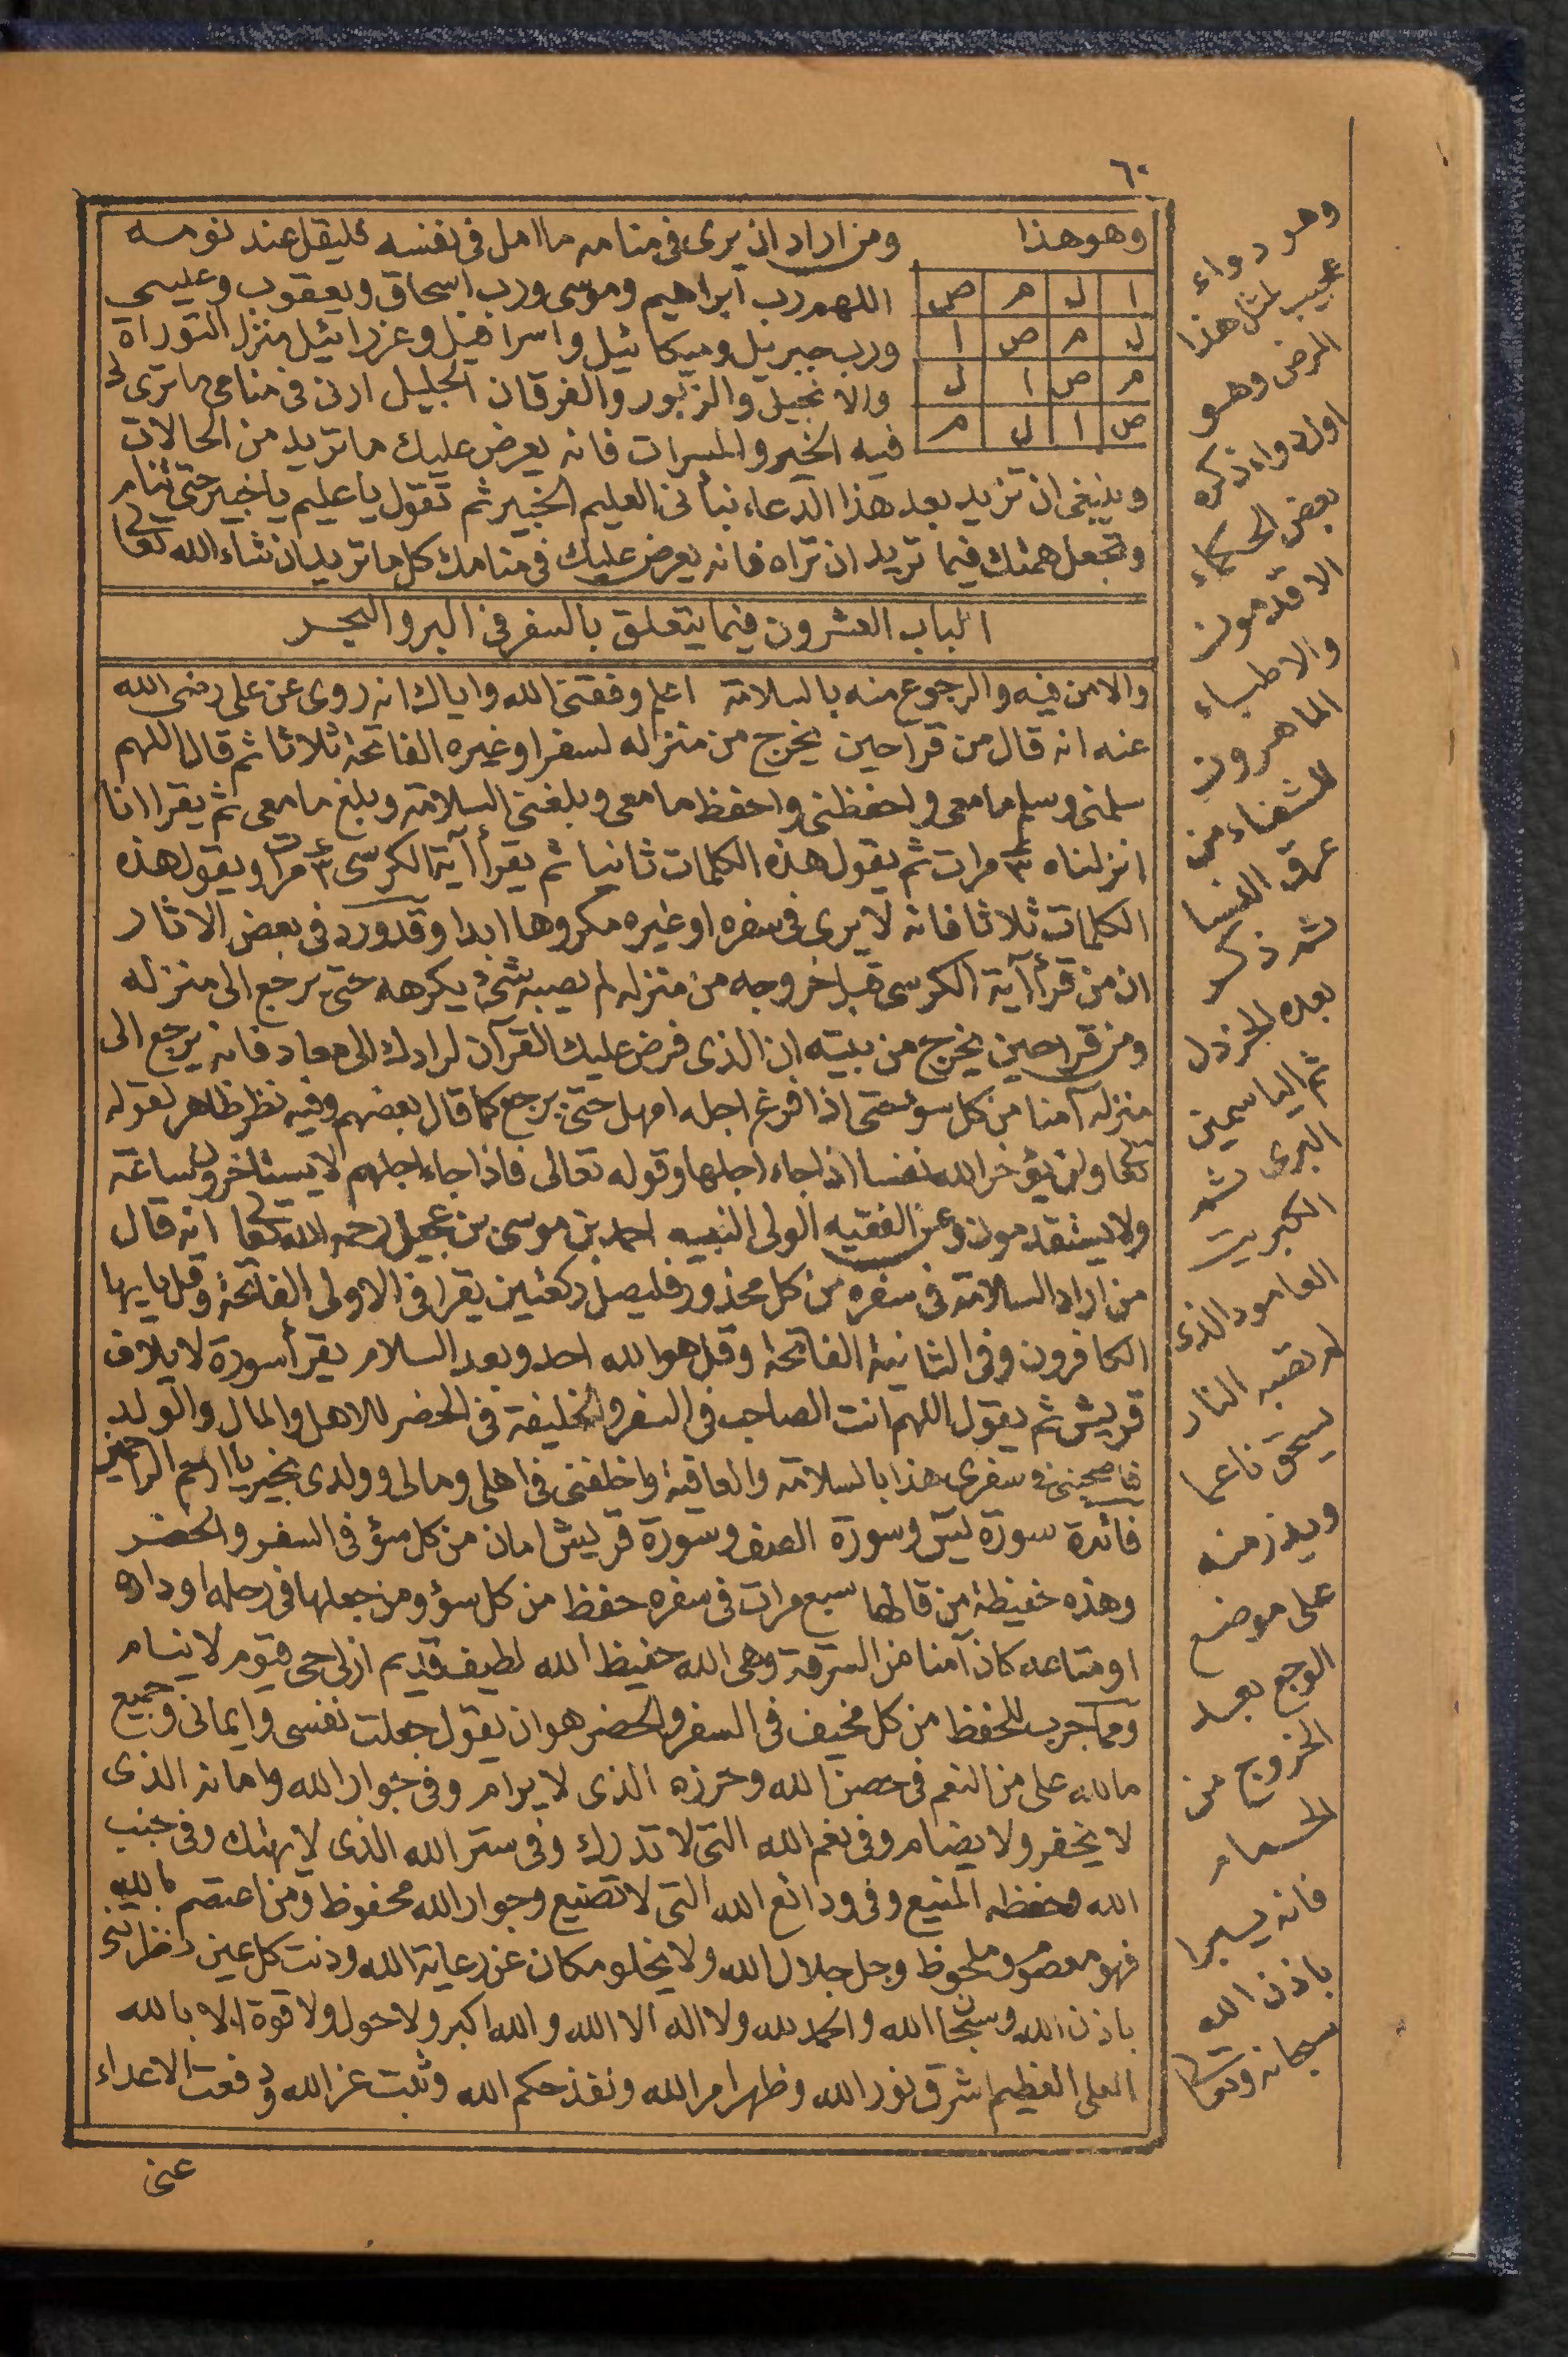 ٦٠
وهو هذا
ا ل م ص
ل م ص ا
م ص ا ل
ص ا ل م
ومن اراد ان يرى فى منامه ما امل فى نفسه فليقل عند نومه
اللهم رب ابراهيم وموسى ورب اسحاق ويعقوب وعيسى
ورب جبريل وميكائيل واسرافيل وعزرائيل منزل التوراة
والانجيل والزبور والفرقان الجليل ارنى فى منامى ما ترى لى
فيه الخير والمسرات فانه يعرض عليك ما تريد من الحالات
وينبغى ان تزيد بعد هذا الدعاء نبأنى العليم الخبير ثم تقول يا عليم يا خبير حتى تنام
وتجعل همتك فيما تريد ان تراه فانه يعرض عليك فى منامك كل ما تريد ان شاء الله تعا
الباب العشرون فيما يتعلق بالسفر فى البر والبحر
والامن فيه والرجوع منه بالسلامة اعلم وفقنى الله واياك انه روى عن على رضى الله
عنه انه قال من قرأ حين يخرج من منزله لسفر او غيره الفاتحة ثلاثا ثم قال اللهم
سلمنى وسلم ما معى واحفظنى واحفظ ما معى وبلغنى السلامة وبلغ ما معى ثم يقرا انا
انزلناه ٣ مرات ثم يقول هذه الكلمات ثانيا ثم يقرأ آية الكرسى ٣ مرات ويقول هذه
الكلمات ثلاثا فانه لا يرى فى سفره او غيره مكروها ابدا وقد ورد فى بعض الاثار
ان من قرأ آية الكرسى قبل خروجه من منزله لم يصبه شئ يكرهه حتى يرجع الى منزله
ومن قرا حين يخرج من بيته ان الذى فرض عليك القرآن لرادك الى معاد فانه يرجع الى
منزله آمنا من كل سوء حتى اذا فرغ اجله امهل حتى يرجع كما قال بعضهم وفيه نظر ظاهر لقوله
تعا ولن يؤخر الله نفسا اذا جاء اجلها وقوله تعالى فاذا جاء اجلهم لا يستأخرون ساعة
ولا يستقدمون وعن الفقيه الولى النبيه احمد بن موسى بن عجيل رحمه الله تعا انه قال
من اراد السلامة فى سفره من كل محذور فليصل ركعتين يقرا فى الاولى الفاتحة وقل يا يها
الكافرون وفى الثانية الفاتحة وقل هو الله احد وبعد السلام يقرأ سورة لايلاف
قريش ثم يقول اللهم انت الصاحب فى السفر والخليفة فى الحضر للاهل والمال والولد
فاصحبنى فى سفرى هذا بالسلامة والعافية واخلفنى فى اهلى ومالى وولدى بخير يا ارحم الراحمين
فائدة سورة يس وسورة الصف وسورة قريش امان من كل سوء فى السفر والحضر
وهذه حفيظة من قالها سبع مرات فى سفره حفظ من كل سوء ومن جعلها فى رحله او داره
او متاعه كان آمنا من السرقة وهى الله حفيظ الله لطيف قديم ازلى حى قيوم لا ينام
ومما جرب للحفظ من كل مخيف فى السفر والحضر هو ان يقول جعلت نفسى وايمانى وجميع
ما لله على من النعم فى حصن الله وحرزه الذى لا يرام وفى جوار الله وامانه الذى
لا يخفر ولا يضام وفى نعم الله التى لا تدرك وفى ستر الله الذى لا يهتك وفى جنب
الله وحفظه المنيع وفى ودائع الله التى لا تضيع وجوار الله محفوظ ومن اعتصم بالله
فهو معصوم وملحوظ وجل جلال الله ولا يخلو مكان عن رعاية الله ودنت كل عين ناظرة
باذن الله وسبحان الله والحمد لله ولا اله الا الله والله اكبر ولا حول ولا قوة الا بالله
العلى العظيم اشرق نور الله وظهر امر الله ونفذ حكم الله وثبت عز الله ودفعت الاعداء
عنى
وهو دواء
عجيب لمثل هذا
المرض وهو
اول دواء ذكره
بعض الحكماء
الاقدمون
والاطباء
الماهرون
للشفاء من
عرق النسا
ثم ذكر
بعده الخردل
ثم الياسمين
البرى ثم
الكبريت
العامود الذى
لم تصبه النار
يسحق ناعما
ويذر منه
على موضع
الوجع بعد
الخروج من
الحمام
فانه يبرا
باذن الله
سبحانه وتعا